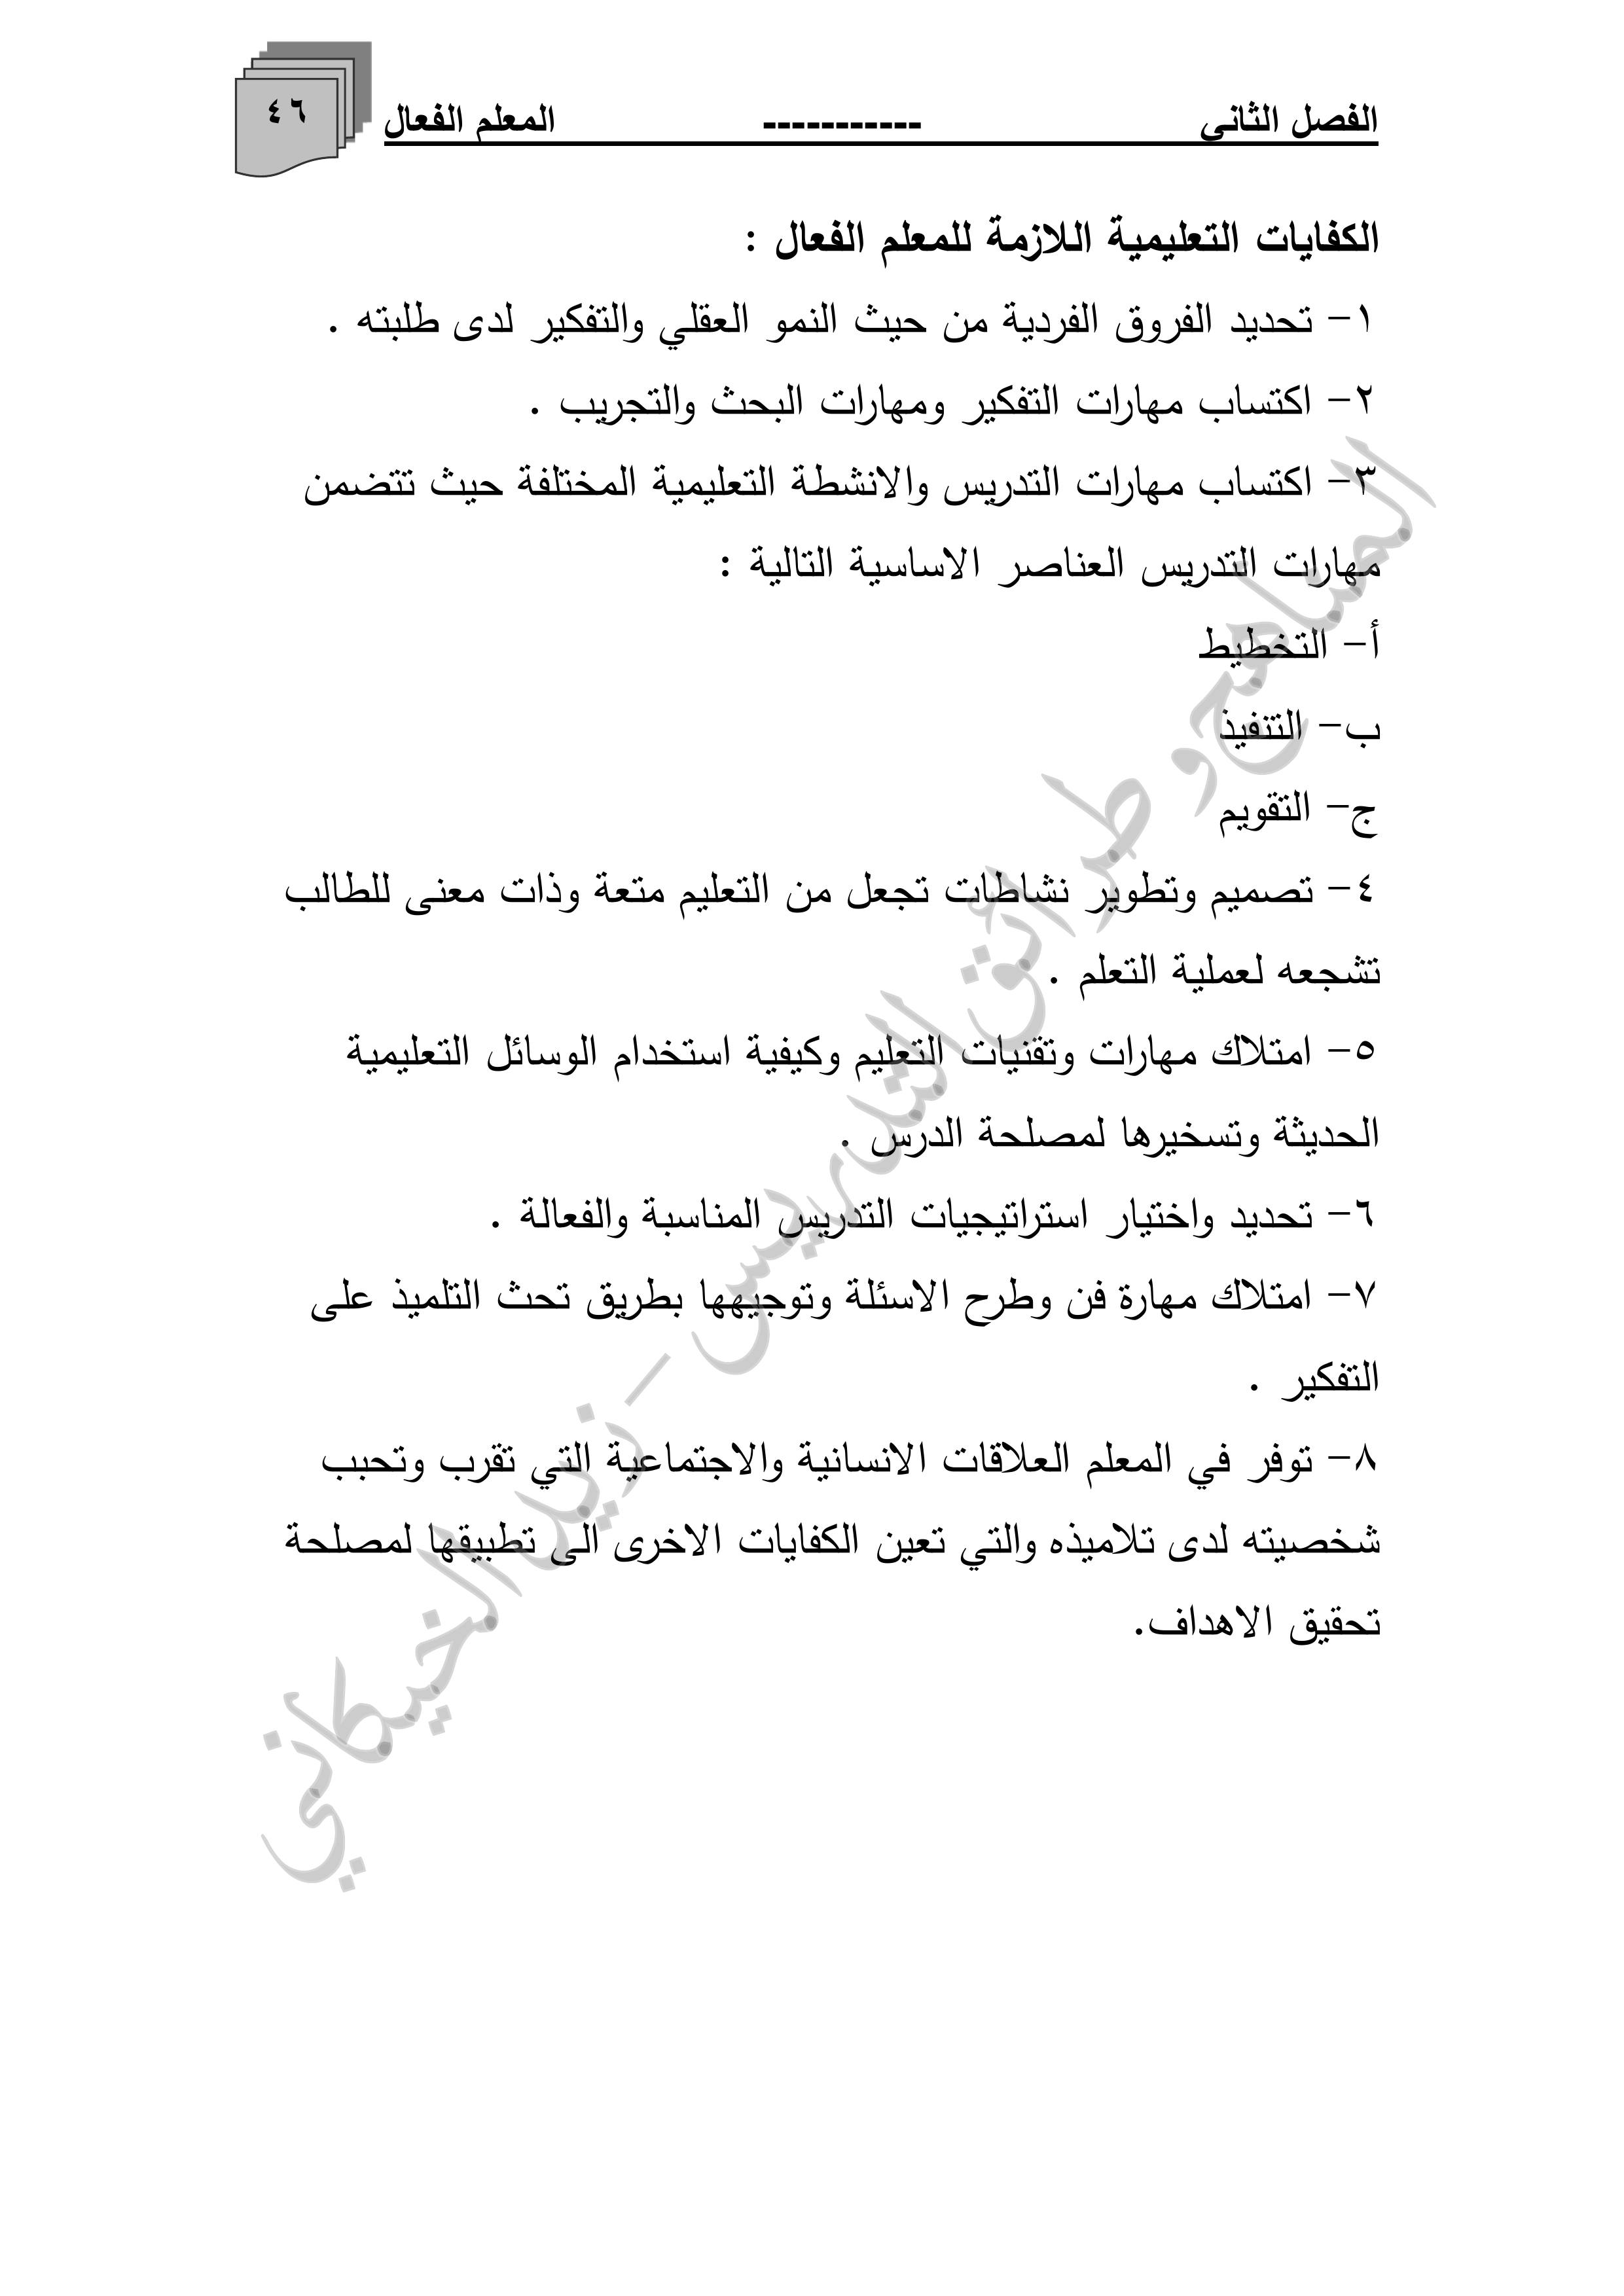 الفصل الثاني ----------- المعلم الفعال
٤٦
الكفايات التعليمية اللازمة للمعلم الفعال :
١- تحديد الفروق الفردية من حيث النمو العقلي والتفكير لدى طلبته .
٢- اكتساب مهارات التفكير ومهارات البحث والتجريب .
٣- اكتساب مهارات التدريس والانشطة التعليمية المختلفة حيث تتضمن
مهارات التدريس العناصر الاساسية التالية :
أ- التخطيط
ب- التنفيذ
ج- التقويم
٤- تصميم وتطوير نشاطات تجعل من التعليم متعة وذات معنى للطالب
تشجعه لعملية التعلم .
٥- امتلاك مهارات وتقنيات التعليم وكيفية استخدام الوسائل التعليمية
الحديثة وتسخيرها لمصلحة الدرس .
٦- تحديد واختيار استراتيجيات التدريس المناسبة والفعالة .
٧- امتلاك مهارة فن وطرح الاسئلة وتوجيهها بطريق تحث التلميذ على
التفكير .
٨- توفر في المعلم العلاقات الانسانية والاجتماعية التي تقرب وتحبب
شخصيته لدى تلاميذه والتي تعين الكفايات الاخرى الى تطبيقها لمصلحة
تحقيق الاهداف.
المناهج وطرائق التدريس - نبيل الخيكاني